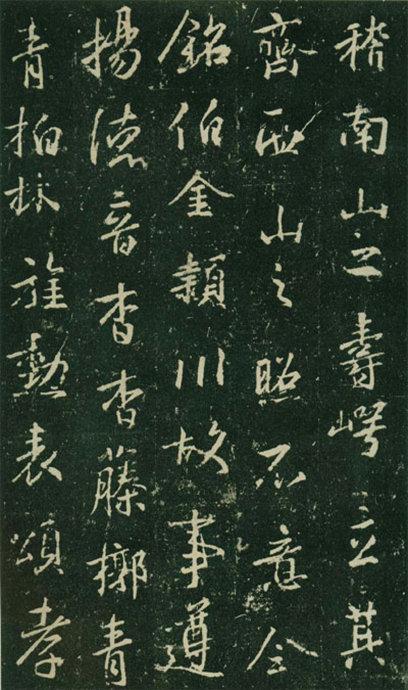 稽南山之壽崿立其
齊西山之照不意今
銘伯金頴川故事遵
揚德音杳杳藤槨青
青柏林旌勳表頌孝